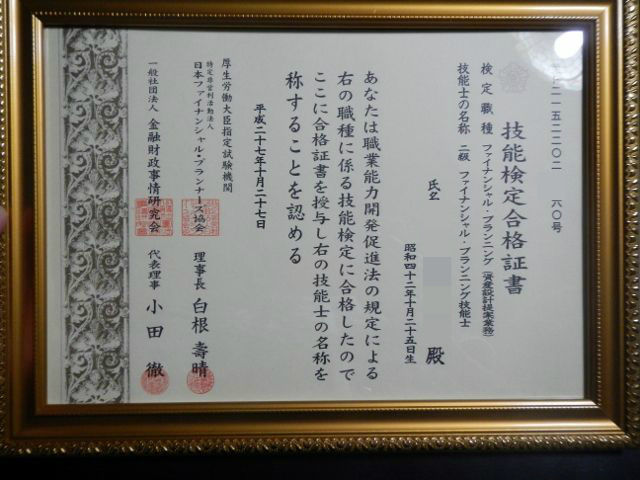 二一五二二〇二
六〇号
技能検定合格証書
検定職種 ファイナンシャル・プランニング (資産設計提案業務)
技能士の名称 二級 ファイナンシャル・プランニング技能士
氏名
殿
昭和四十二年十月二十五日生
あなたは職業能力開発促進法の規定による
右の職種に係る技能検定に合格したので
ここに合格証書を授与し右の技能士の名称を
称することを認める
平成二十七年十月二十七日
厚生労働大臣指定試験機関
特定非営利活動法人
日本ファイナンシャル・プランナーズ協会 理事長 白根壽晴
一般社団法人 金融財政事情研究会 代表理事 小田徹